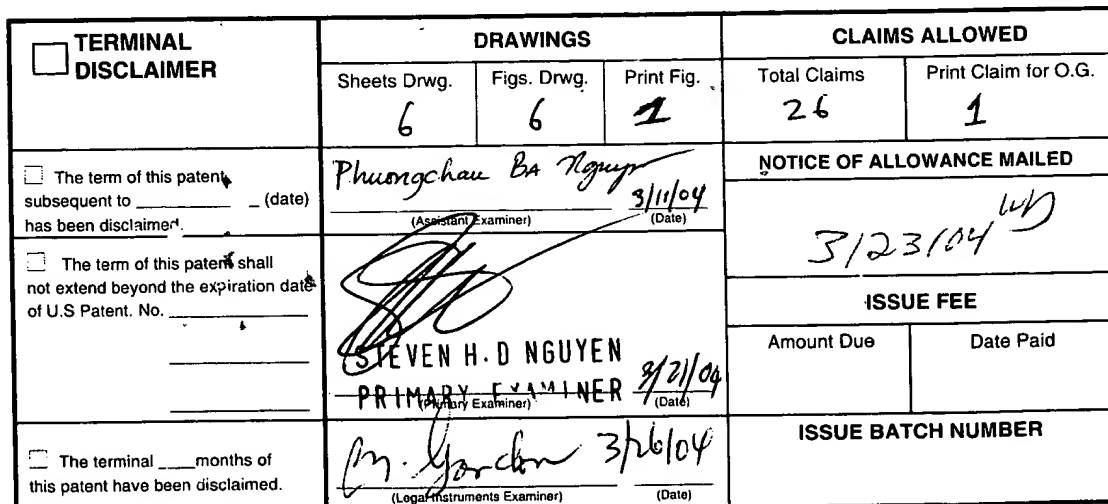 TERMINAL
DISCLAIMER
DRAWINGS
CLAIMS ALLOWED
Sheets Drwg.
Figs. Drwg.
Print Fig.
Total Claims
Print Claim for O.G.
6
6
1
26
1
The term of this patent
subsequent to _________ (date)
has been disclaimed.
Phuongchau BA Nguyen
3/11/04
(Assistant Examiner)
(Date)
NOTICE OF ALLOWANCE MAILED
3/23/04
The term of this patent shall
not extend beyond the expiration date
of U.S Patent. No. ____________
STEVEN H. D NGUYEN
PRIMARY EXAMINER
3/21/04
(Primary Examiner)
(Date)
ISSUE FEE
Amount Due
Date Paid
The terminal ____months of
this patent have been disclaimed.
M. Gordon 3/26/04
(Legal Instruments Examiner)
(Date)
ISSUE BATCH NUMBER